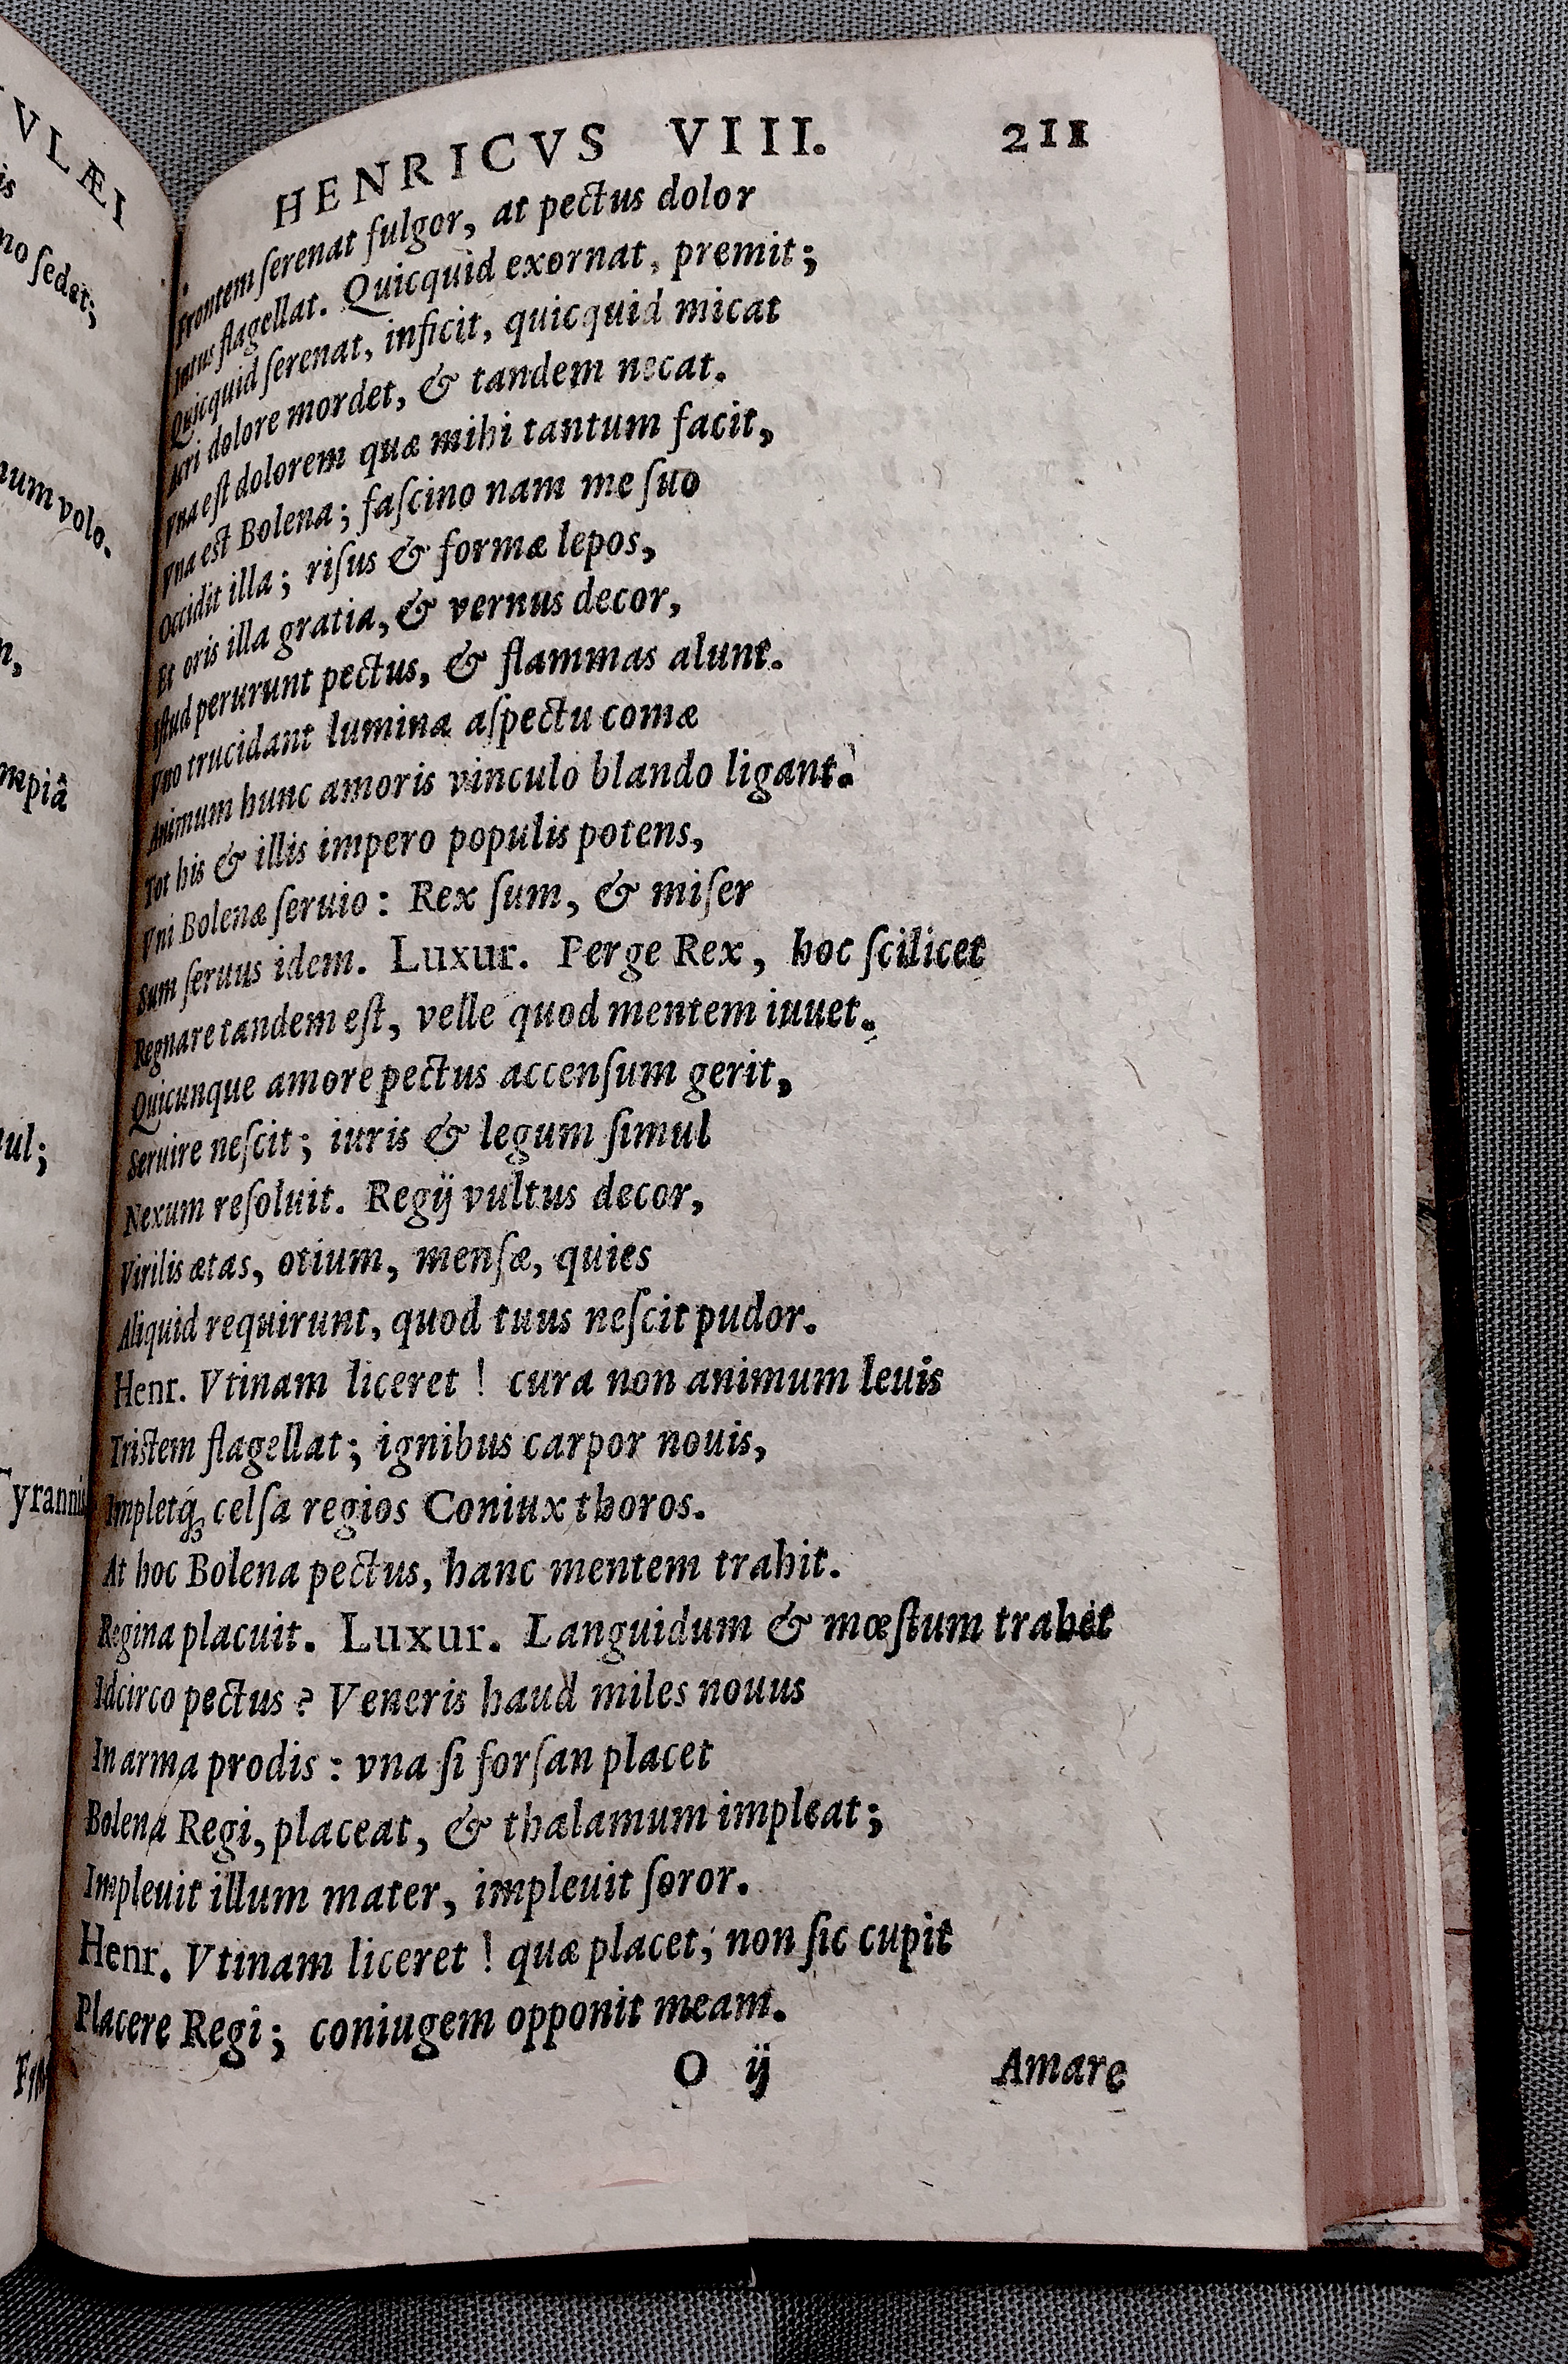 VLÆI
is
no ſedet;
num volo.
mpiâ
ul;
Tyrannis
HENRICVS VIII. 211
Frontem ſerenat fulgor, at pectus dolor
Intus flagellat. Quicquid exornat, premit;
Quicquid ſerenat, inficit, quicquid micat
Acri dolore mordet, & tandem necat.
Vna eſt dolorem quæ mihi tantum facit,
Vna est Bolena; faſcino nam me ſuo
Occidit illa; riſus & formæ lepos,
Et oris illa gratia, & vernus decor,
Iſtud perurunt pectus, & flammas alunt.
Vno trucidant lumina aſpectu comæ
Animum hunc amoris vinculo blando ligant.
Tot his & illis impero populis potens,
Vni Bolenæ ſeruio: Rex ſum, & miſer
Sum ſeruus idem. Luxur. Perge Rex, hoc ſcilicet
Regnare tandem eſt, velle quod mentem iuuet.
Quicunque amore pectus accenſum gerit,
Seruire neſcit; iuris & legum ſimul
Nexum reſoluit. Regij vultus decor,
Virilis ætas, otium, menſæ, quies
Aliquid requirunt, quod tuus neſcit pudor.
Henr. Vtinam liceret! cura non animum leuis
Tristem flagellat; ignibus carpor nouis,
Impletq́ꝫ celſa regios Coniux thoros.
At hoc Bolena pectus, hanc mentem trahit.
Regina placuit. Luxur. Languidum & mœſtum trahet
Idcirco pectus? Veneris haud miles nouus
In arma prodis: vna ſi forſan placet
Bolena Regi, placeat, & thalamum impleat;
Impleuit illum mater, impleuit ſoror.
Henr. Vtinam liceret! quæ placet, non ſic cupit
Placere Regi; coniugem opponit meam.
O ij Amare